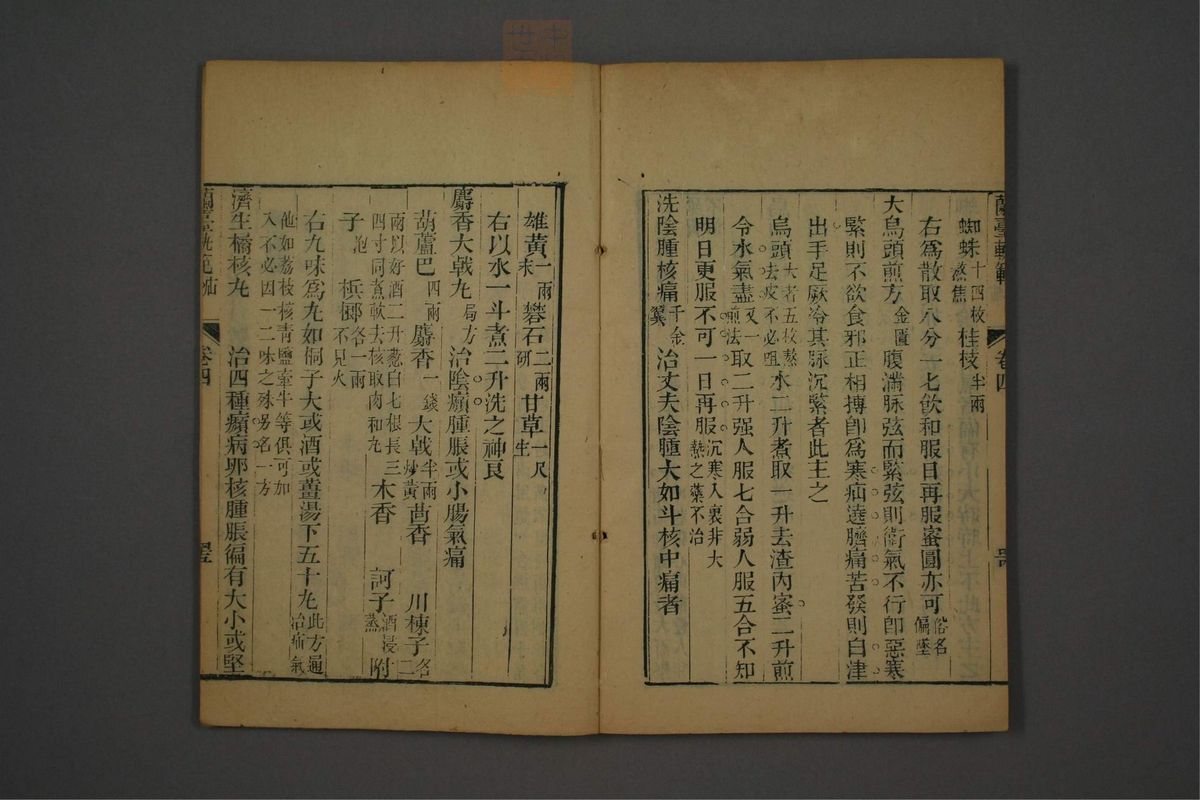 蘭臺軌範
卷四
蜘蛛十四枚熬焦 桂枝半兩
右爲散取八分一匕飲和服日再服蜜圓亦可俗名偏墜
大烏頭煎方金匱 腹滿脉弦而緊弦則衛氣不行卽惡寒
緊則不欲食邪正相搏卽爲寒疝遶臍痛苦發則白津
出手足厥冷其脉沉緊者此主之
烏頭大者五枚熬去皮不必咀 水二升煮取一升去渣內蜜二升煎
令水氣盡又一煎法取二升强人服七合弱人服五合不知
明日更服不可一日再服沉寒入裏非大熱之藥不治
洗陰腫核痛千金翼 治丈夫陰腫大如斗核中痛者
雄黃一兩末 礬石二兩研 甘草一尺生
右以水一斗煮二升洗之神良
麝香大戟丸局方 治陰㿗腫脹或小腸氣痛
葫蘆巴四兩 麝香一錢 大戟半兩炒黃 茴香 川楝子各二
兩以好酒二升葱白七根長三四寸同煮軟去核取肉和丸 木香 訶子酒浸蒸 附
子泡 檳榔各一兩不見火
右九味爲丸如桐子大或酒或薑湯下五十丸此方通治疝氣
他如荔枝核青鹽牽牛等俱可加入不必因一二味之殊另名一方
濟生橘核丸 治四種㿗病夘核腫脹偏有大小或堅
卷四